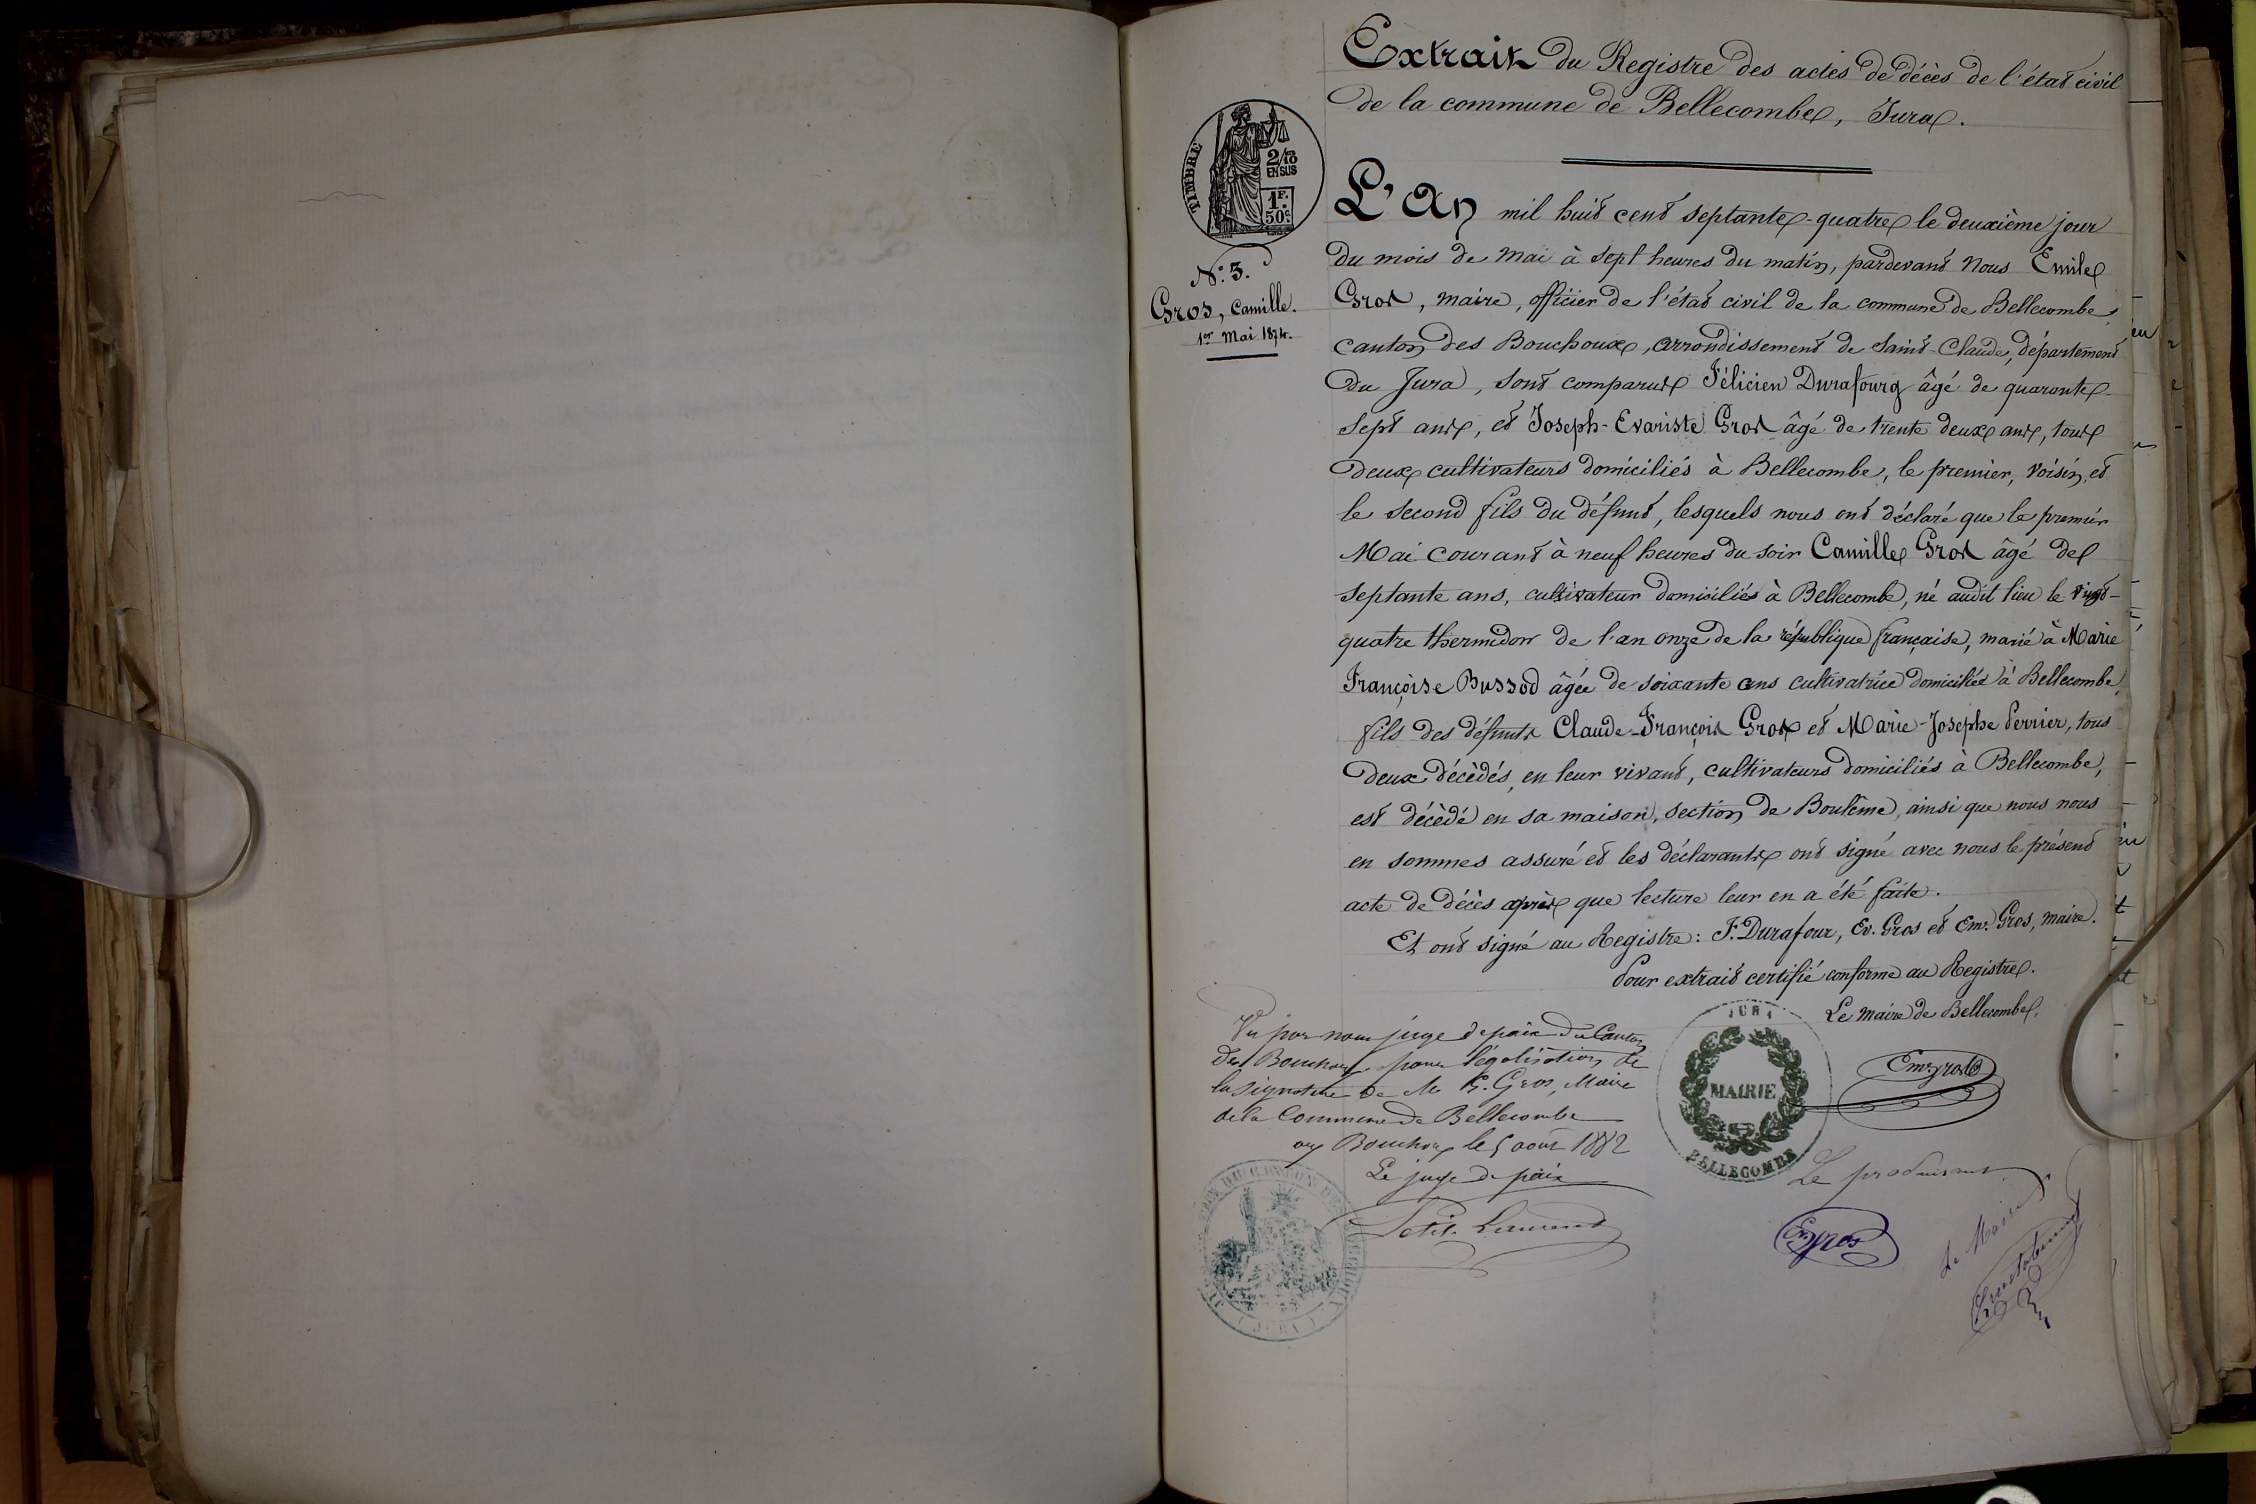 Extrait du Registre des actes de décès de l'état civil
de la commune de Bellecombe, Jura.
TIMBRE
2/10
EN SUS
1F.
50c.
N° 3.
Gros, Camille.
1er Mai 1874.
L'An mil huit cent septante-quatre le deuxième jour
du mois de mai à sept heures du matin, pardevant nous Emile
Gros, maire, officier de l'état civil de la commune de Bellecombe,
canton des Bouchoux, arrondissement de Saint-Claude, département
du Jura, sont comparus Félicien Durafourg âgé de quarante-
sept ans, et Joseph-Evariste Gros âgé de trente deux ans, tous
deux cultivateurs domiciliés à Bellecombe, le premier, voisin, et
le second fils du défunt, lesquels nous ont déclaré que le premier
Mai courant à neuf heures du soir Camille Gros âgé de
septante ans, cultivateur domiciliés à Bellecombe, né audit lieu le vingt-
quatre thermidor de l'an onze de la république française, marié à Marie
Françoise Bussod âgée de soixante ans cultivatrice domiciliée à Bellecombe,
fils des défunts Claude-François Gros et Marie-Josephe Perrier, tous
deux décédés, en leur vivant, cultivateurs domiciliés à Bellecombe,
est décédé en sa maison, section de Boulème, ainsi que nous nous
en sommes assuré et les déclarants ont signé avec nous le présent
acte de décès après que lecture leur en a été faite.
Et ont signé au Registre: F. Durafour, Ev. Gros et Em. Gros, maire.
Pour extrait certifié conforme au Registre.
Le maire de Bellecombe.
Em. gros
Vu par nous juge de paix du Canton
des Bouchoux pour légalisation de
la signature de M. E. Gros, Maire
de la Commune de Bellecombe
aux Bouchoux le 5 août 1882
Le juge de paix
JURA
MAIRIE
BELLECOMBE
Le produisant
Em gros
Le Maire